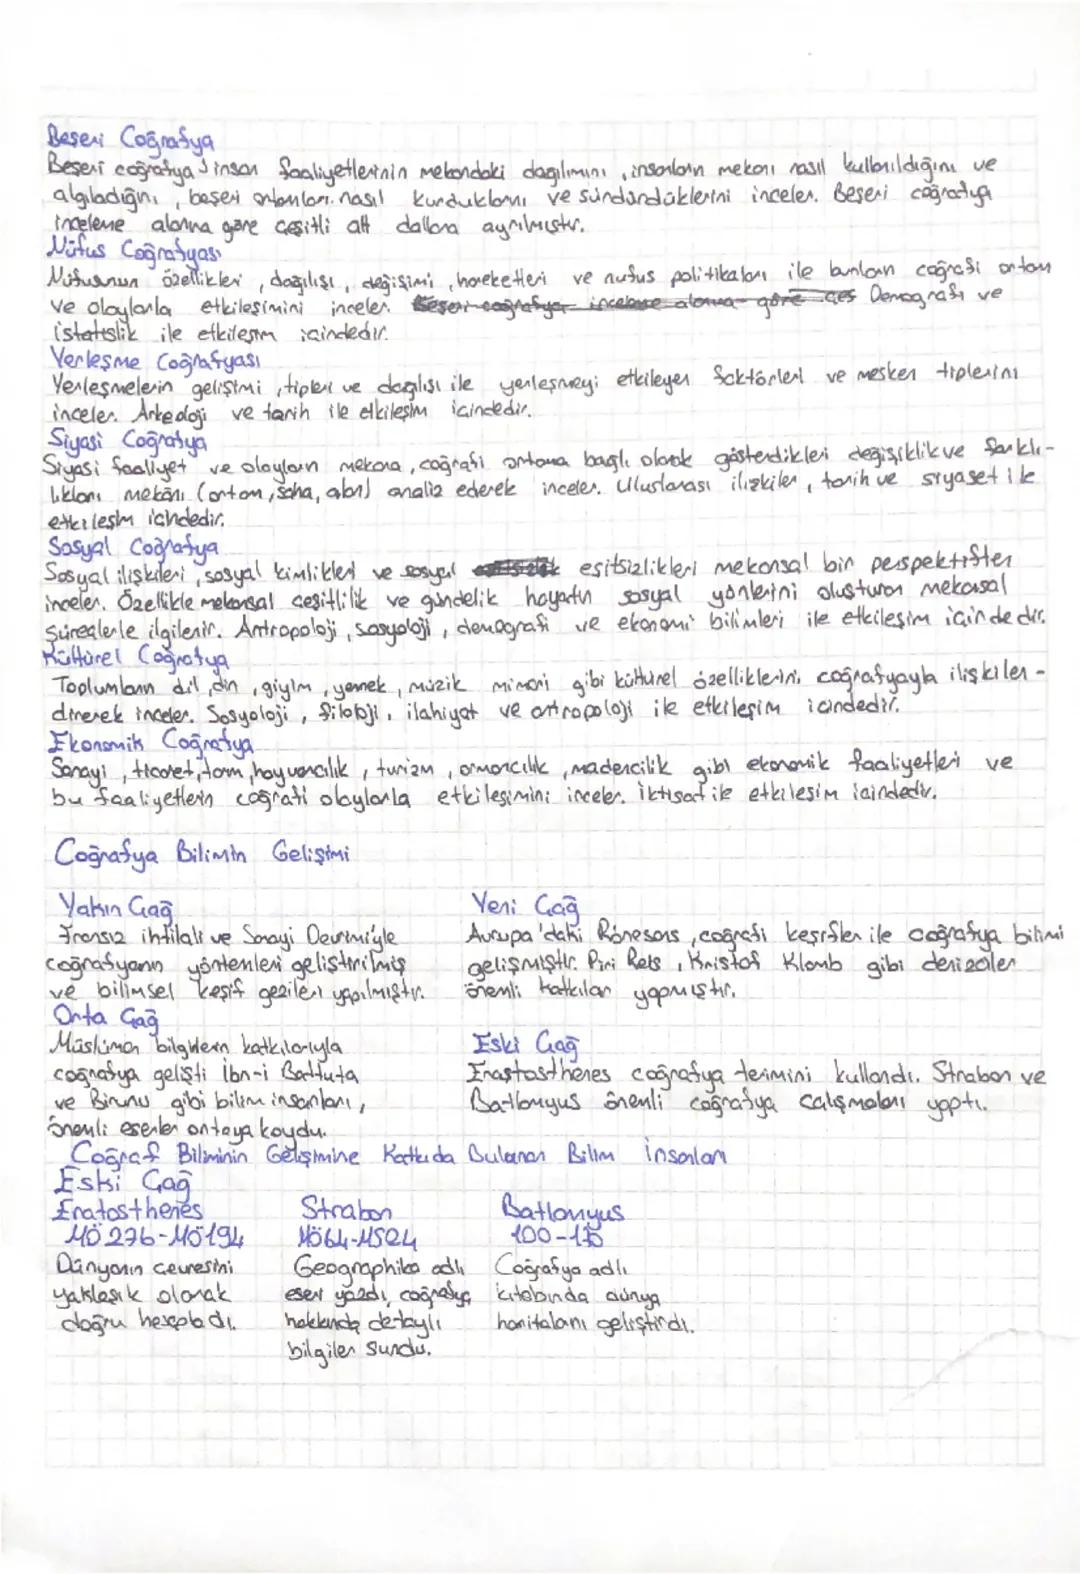 Beşeri Coğrafya
Beşeri coğrafya; insan faaliyetlerinin mekandaki dağılımını, insanların mekanı nasıl kullanıldığını ve
algıladığını, beşeri ortamları nasıl kurduklarını ve sürdürdüklerini inceler. Beşeri coğrafya
inceleme alanına göre çeşitli alt dallara ayrılmıştır.
Nüfus Coğrafyası
Nüfusunun özellikleri, dağılışı, değişimi, hareketleri ve nüfus politikaları ile bunların coğrafi ortam
ve olaylarla etkileşimini inceler. Beşeri coğrafya inceleme alanına göre çeş Demografi ve
istatistik ile etkileşim içindedir.
Yerleşme Coğrafyası
Yerleşmelerin gelişimi, tipleri ve dağılışı ile yerleşmeyi etkileyen faktörleri ve mesken tiplerini
inceler. Arkeoloji ve tarih ile etkileşim içindedir.
Siyasi Coğrafya
Siyasi faaliyet ve olayların mekana, coğrafi ortama bağlı olarak gösterdikleri değişiklik ve farklı-
lıkları mekânı (ortam, saha, alan) analiz ederek inceler. Uluslarası ilişkiler, tarih ve siyaset ile
etkileşim içindedir.
Sosyal Coğrafya
Sosyal ilişkileri, sosyal kimlikleri ve sosyal eşitsizlikleri mekansal bir perspektiften
inceler. Özellikle mekansal çeşitlilik ve gündelik hayatın sosyal yönlerini oluşturan mekansal
süreçlerle ilgilenir. Antropoloji, sosyoloji, demografi ve ekonomi bilimleri ile etkileşim içindedir.
Kültürel Coğrafya
Toplumların dil, din, giyim, yemek, müzik mimari gibi kültürel özelliklerini, coğrafyayla ilişkilen-
direrek inceler. Sosyoloji, filoloji, ilahiyat ve antropoloji ile etkileşim içindedir.
Ekonomik Coğrafya
Sanayi, ticaret, tarım, hayvancılık, turizm, ormancılık, madencilik gibi ekonomik faaliyetleri ve
bu faaliyetlerin coğrafi olaylarla etkileşimini inceler. İktisat ile etkileşim içindedir.
Coğrafya Bilimin Gelişimi
Yakın Çağ
Fransız ihtilali ve Sanayi Devrimi'yle
coğrafyanın yöntemleri geliştirilmiş
ve bilimsel keşif gezileri yapılmıştır.
Yeni Çağ
Avrupa'daki Rönesans, coğrafi keşifler ile coğrafya bilimi
gelişmiştir. Piri Reis, Kristof Klomb gibi denizciler
önemli katkılar yapmıştır.
Orta Çağ
Müslüman bilginlerin katkılarıyla
coğrafya gelişti İbn-i Battuta
ve Birunu gibi bilim insanları,
önemli eserler ortaya koydu.
Eski Çağ
Erastosthenes coğrafya terimini kullandı. Strabon ve
Batlamyus önemli coğrafya çalışmaları yaptı.
Coğraf Biliminin Gelişimine Katkıda Bulunan Bilim İnsanları
Eski Çağ
Eratosthenes
MÖ 276-MÖ194
Dünyanın çevresini
yaklaşık olarak
doğru hesapladı.
Strabon
MÖ64-MS24
Geographika adlı
eseri yazdı, coğrafya
hakkında detaylı
bilgiler sundu.
Batlamyus
100-170
Coğrafya adlı
kitabında dünya
haritalarını geliştirdi.